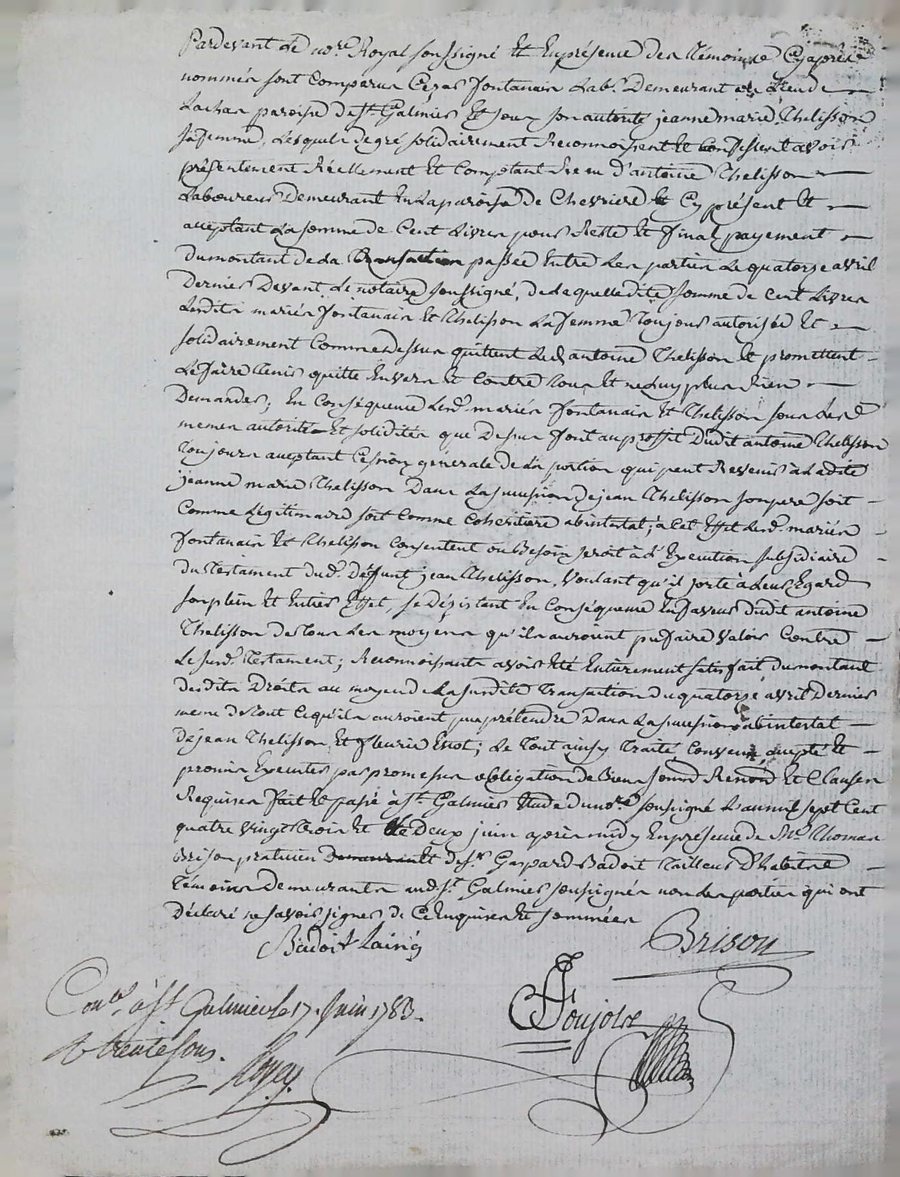 Pardevant Le no.re Royal soussigné Et En présence des Témoins Cy après
nommés sont comparus Cezar fontanair Lab.r Demeurant au Lieu de
Lachar paroisse de st. Galmier Et sous son autorité jeanne marie Thelisson
sa femme, Lesquels de gré solidairement Reconnoissent Et Confessent avoir
présentement Réellement Et Comptant Reçu d'antoine Thelisson
Laboureur Demeurant En La paroisse de Chevriere Cy présent Et
acceptant La somme de Cent Livres pour Reste Et final payement
du montant de La Transaction passée Entre Les parties Le quatorse avril
Dernier Devant Le notaire soussigné, de laquelle dite somme de Cent Livres
Lesdits mariés fontanair Et Thelisson La femme Toujours autorisée Et
solidairement Comme dessus quittent Led. antoine Thelisson Et promettent
Le faire Tenir quitte Envers Et Contre Tous Et ne Luy plus Rien
Demander; En Conséquence Lesd. mariés fontanair Et Thelisson sous Lesd.
memes autorité Et solidité que Dessus font au proffit Dudit antoine Thelisson
Toujours acceptant Cession générale de La portion qui peut Revenir à Ladite
jeanne marie Thelisson Dans La succession De jean Thelisson son pere soit
Comme Légitimaire soit Comme Coheritiere abintestat; à Cet Effet Lesd. mariés
fontanair Et Thelisson Consentent ou Besoin seroit à L'Execution subsidiaire
du Testament dud. Deffunt jean Thelisson, Voulant qu'il sorte à Leur Egard
son plein Et Entier Effet, se Désistant En Conséquence En faveur dudit antoine
Thelisson de Tous Les moyens qu'ils auroient pu faire valoir Contre
Le susd. Testament; Reconnoissants avoir été Entierement satisfait du montant
desdits Droits au moyen de La susdite Transaction du quatorse avril Dernier
meme de Tout Ce qu'ils auroient pu prétendre Dans La succession abintestat
De jean Thelisson Et fleurie Essot; Le Tout ainsy Traité Convenu accepté Et
promis Executer par promesses obligation de Biens soumd. Renond. Et Clauses
Requises fait Et passé à st. Galmier Etude du no.re soussigné L'an mil sept Cent
quatre vingt Trois Et Le Deux juin après midy En présence de M.e Thomas
Brison praticien Demeurant Et de s.r Gaspard Badoit Tailleur D'habits
Témoins Demeurants aud. st. Galmier soussignés non Les parties qui ont
Déclaré ne savoir signer de Ce Enquises Et sommées
Badoit Lainé
Brison
Con.lé à st Galmier le 17. Juin 1783.
R trente sous.
Pujolse